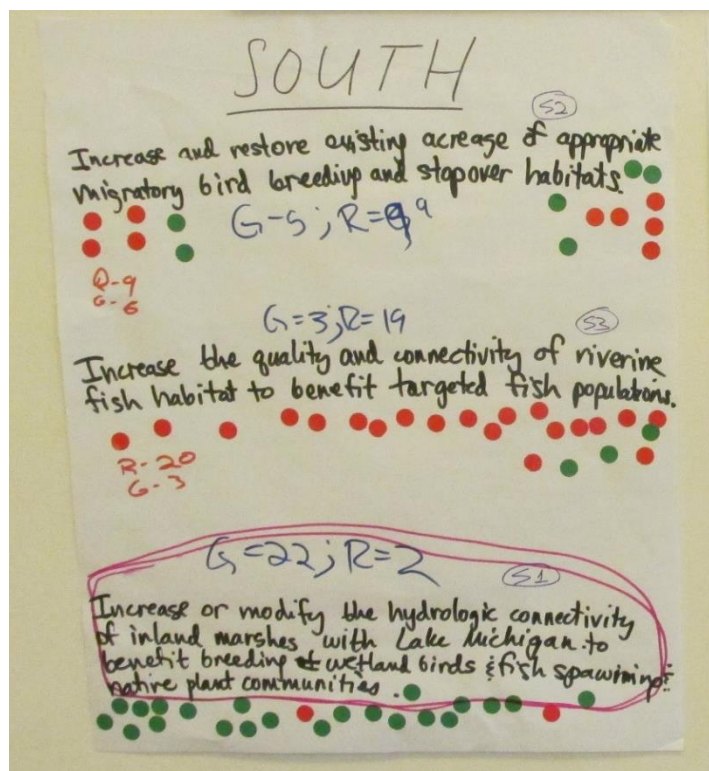 SOUTH
S2
Increase and restore existing acreage of appropriate
migratory bird breeding and stopover habitats.
G-5; R=9
R-9
G-6
G=3; R=19
S3
Increase the quality and connectivity of riverine
fish habitat to benefit targeted fish populations.
R-20
G-3
G=22; R=2
S1
Increase or modify the hydrologic connectivity
of inland marshes with Lake Michigan to
benefit breeding wetland birds & fish spawning &
native plant communities.